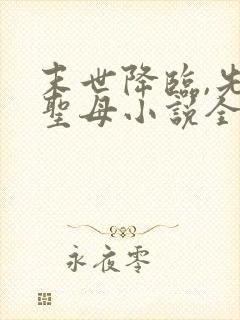 末世降臨,先
聖母小說全
永夜零